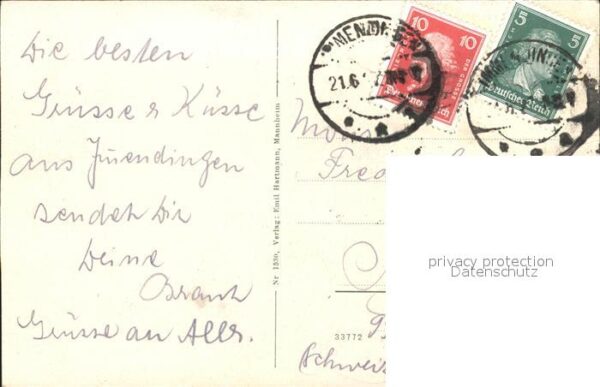 Die besten
Grüsse & Küsse
aus Immendingen
sendet Dir
Deine
Braut
Grüsse an Alle.
Nr 1530, Verlag: Emil Hartmann, Mannheim
10 10
Deutsches Reich
5 5
Deutsches Reich
21.6
Fred
33772
Schweiz
privacy protection
Datenschutz